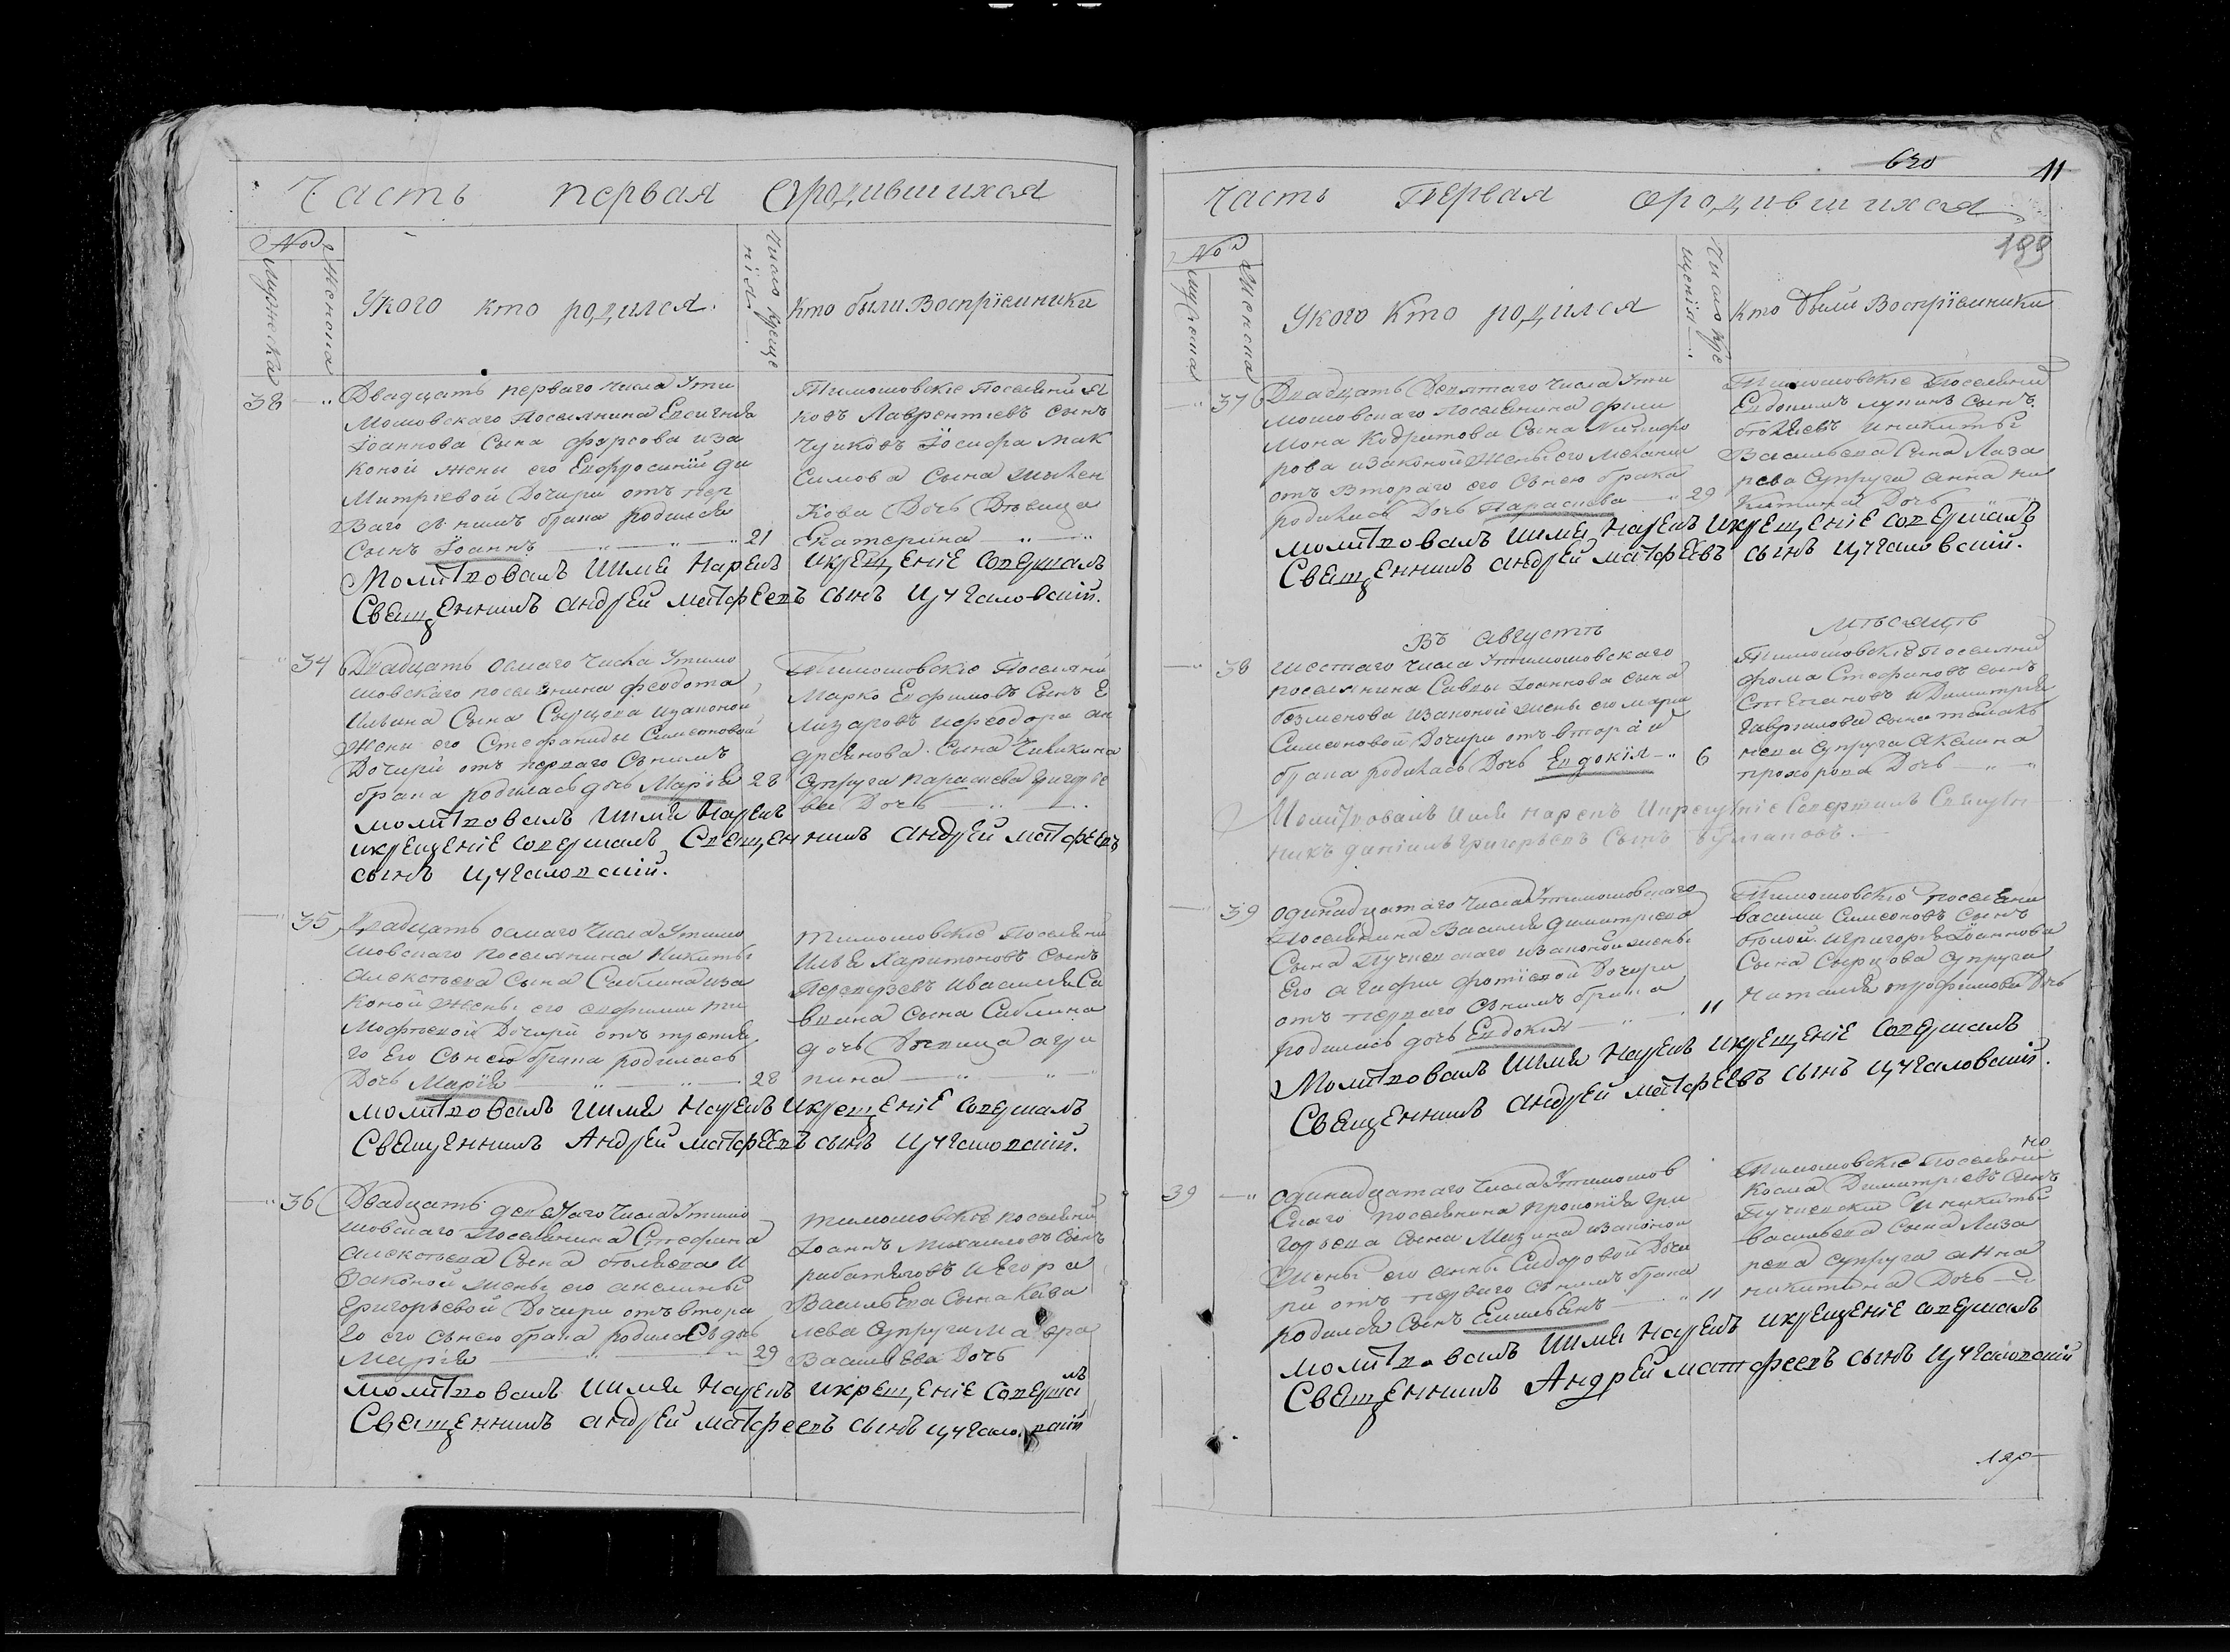 Часть первая Ородившихся
No
Мужеска
Женска
Укого кто родился.
Число креще
нія.
Кто были Воспріемники
38
Двадцать перваго числа Ути
мошовскаго Поселянина Евсигнія
Іоаннова Сына Фурсова иза
коной жены его Евфросиніи Ди
митріевой Дочери отъ пер
ваго съ нимъ брака родился
Сынъ Іоаннъ 21
Тимошовскіе Поселяни Я
ковъ Лаврентіевъ сынъ
Чуйковъ Іосифа Мак
симова Сына
кова Дочь Дѣвица
Екатерина
Молитвовалъ Иимя Нарекъ Икрещеніе Совершалъ
Священникъ Андрей Матфеевъ сынъ
34
Двадцать осмаго Числа Утимо
шовскаго поселянина Феодота
Ильина Сына Сырцова изаконой
жены его Стефаниды Симеоновой
Дочери отъ перваго Снимъ
брака родилась дочь Марія 28
Тимошовскіе Поселяни
Марко Евфимовъ Сынъ Е
лизаровъ иФеодора ан
дреянова Сына Чикина
Супруга параскева Григорье
ва Дочь
молитвовалъ Иимя Нарекъ
икрещеніе совершалъ Священникъ Андрей Матфеевъ
сынъ
35
Двадцать осмаго Числа Утимо
шовскаго поселянина Никиты
Алексѣева Сына Саблина иза
коной жены его
мофѣевой Дочери отъ третья
го Его Снею брака родилась
Дочь Марія 28
Тимошовскіе Поселяни
Илья Харитоновъ Сынъ
иВасилія Са
ввина Сына Саблина
дочь Дѣвица агри
пина
молитвовалъ Иимя Нарекъ Икрещеніе совершалъ
Священникъ Андрей Матфеевъ сынъ
36
Двадцать девятаго Числа Утимо
шовскаго Поселянина Стефана
Алексѣева Сына Отляева И
законой жены его акелины
Григорьевой Дочери отъ втора
го его снею брака родилась дочь
Марія 29
Тимошовскіе поселяни
Іоаннъ Михаиловъ Сынъ
работяговъ иЕгора
Васильева Сына Кава
лева Супруга
Васильева Дочь
молитвовалъ Иимя Нарекъ икрещеніе Соверша
лъ
Священникъ андрей Матфеевъ сынъ
620
11
Часть Первая ородившихся
199
No
Мужеска
Женска
Укого Кто родился
Число кре
щенія
Кто были Воспріемники
37
Двадцать Девятаго числа Ути
мошовскаго поселянина фили
мона Кодратова Сына Никифо
рова изаконой Жены его Меланіи
отъ Втораго его Снею брака
родилась Дочь Параскева 29
Тимошовскіе Поселяни
Евдокимъ лупинъ сынъ
Отляевъ иникиты
Васильева Сына Лаза
рева Супруга анна ни
китина Дочь
молитвовалъ иимя Нарекъ Икрещеніе совершалъ
Священникъ андрей Матфеевъ сынъ
Въ Августѣ Мѣсяцѣ
38
шестаго числа Утимошовскаго
поселянина Саввы Іоаннова сына
безменова изаконой жены его Маріи
Симеоновой Дочери отъ
брака родилась Дочь Евдокія 6
Тимошовскіе Поселяни
фома Стефановъ сынъ
Степановъ иДимитрія
Гаврилова сына
нева супруга Акелина
прохорова Дочь
Молитвовалъ Имя нарекъ Икрещеніе Совершилъ Священ
никъ Даніилъ Григорьевъ Сынъ
39
одинадцатаго числа Утимошовскаго
Поселянина Василія Димитріева
Сына Пучневскаго изаконой жены
Его агафіи фотіевой Дочери
отъ перваго Снимъ брака
родилась дочь Евдокія 11
Тимошовскіе поселяни
василій Симеоновъ Сынъ
бѣлой иГригорія Іоаннова
Сына Сырцова Супруга
Наталія трофимова Дочь
Молитвовалъ Иимя Нарекъ икрещеніе совершалъ
Священникъ андрей Матфеевъ сынъ
39
одинадцатаго Числа Утимошов
скаго поселянина прокопія гри
горьева сына Мизина изаконой
жены его анны Сидоровой Доче
ри отъ перваго снимъ брака
родился Сынъ Емильянъ 11
но
Тимошовскіе Поселяни
Косма Димитріевъ Сынъ
Пучневскій Иникиты
васильева сына Лаза
рева супруга анна
никитина Дочь
молитвовалъ Иимя Нарекъ икрещеніе совершалъ
Священникъ Андрей Матфеевъ сынъ